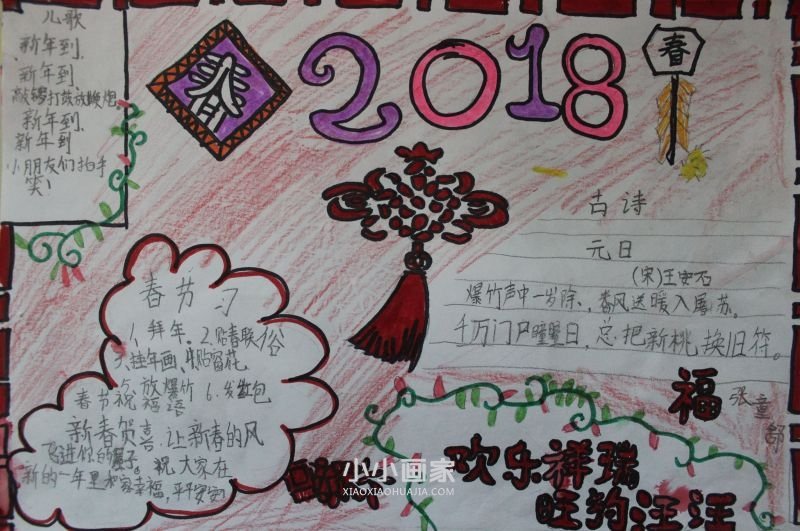 儿歌
新年到,
新年到,
敲锣打鼓放鞭炮
新年到,
新年到
小朋友们拍手
笑!
春
2018
春
古诗
元日
(宋)王安石
爆竹声中一岁除,春风送暖入屠苏。
千万门户曈曈日,总把新桃换旧符。
福
张童舒
春节习俗
1、拜年。2.贴春联
3、挂年画、4.贴窗花
5、放爆竹 6.发红包
春节祝福语
新春贺吉,让新春的风
飞进你的屋子。祝大家在
新的一年里和家幸福,平安
欢乐祥瑞
旺狗汪汪
小小画家
XIAOXIAOHUAJIA.COM